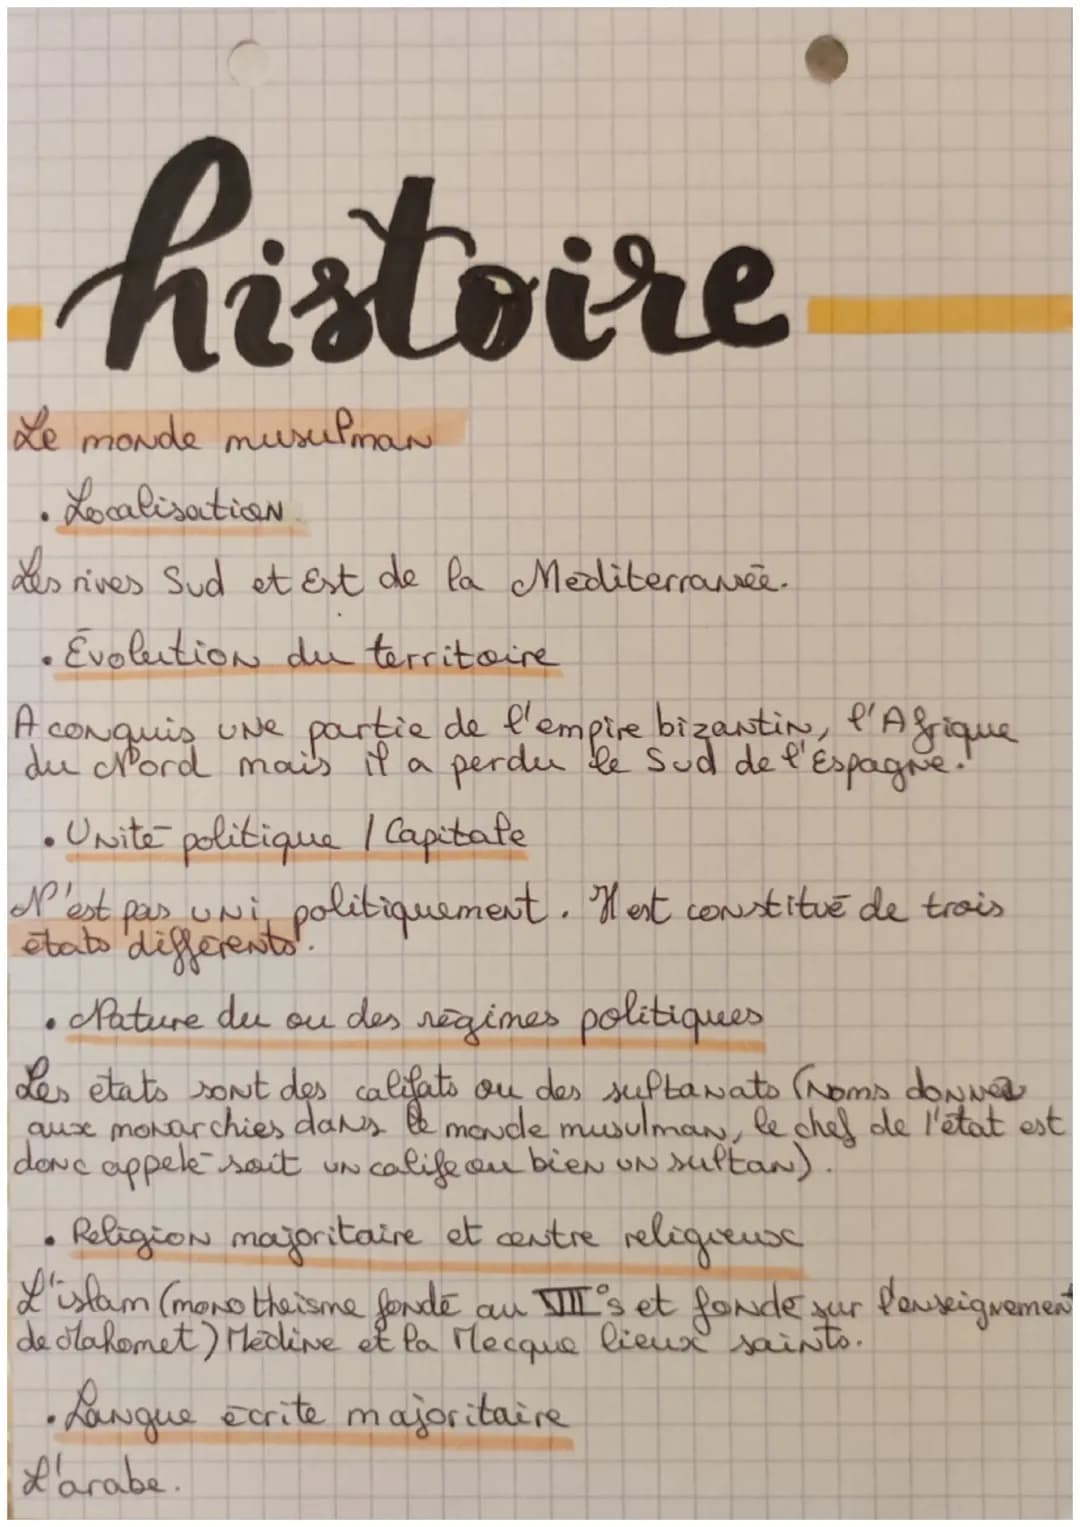 histoire
Le monde musulman
. Localisation.
Les rives Sud et Est de la Méditerranée.
. Évolution du territoire
A conquis une partie de l'empire bizantin, l'Afrique
du Nord mais il a perdu le Sud de l'Espagne.
. Unité politique / Capitale
N'est pas uni politiquement. Il est constitué de trois
états différents.
. Nature du ou des régimes politiques
Les états sont des califats ou des sultanats (noms donnés
aux monarchies dans le monde musulman, le chef de l'état est
donc appelé soit un calife ou bien un sultan).
. Religion majoritaire et centre religieux
L'islam (monotheisme fondé au VII°s et fondé sur l'enseignement
de Mahomet) Médine et la Mecque lieux saints.
. Langue écrite majoritaire
L'arabe.